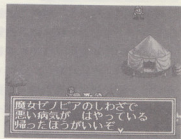 魔女ゼノビアのしわざで
悪い病気が はやっている
帰ったほうがいいぞ